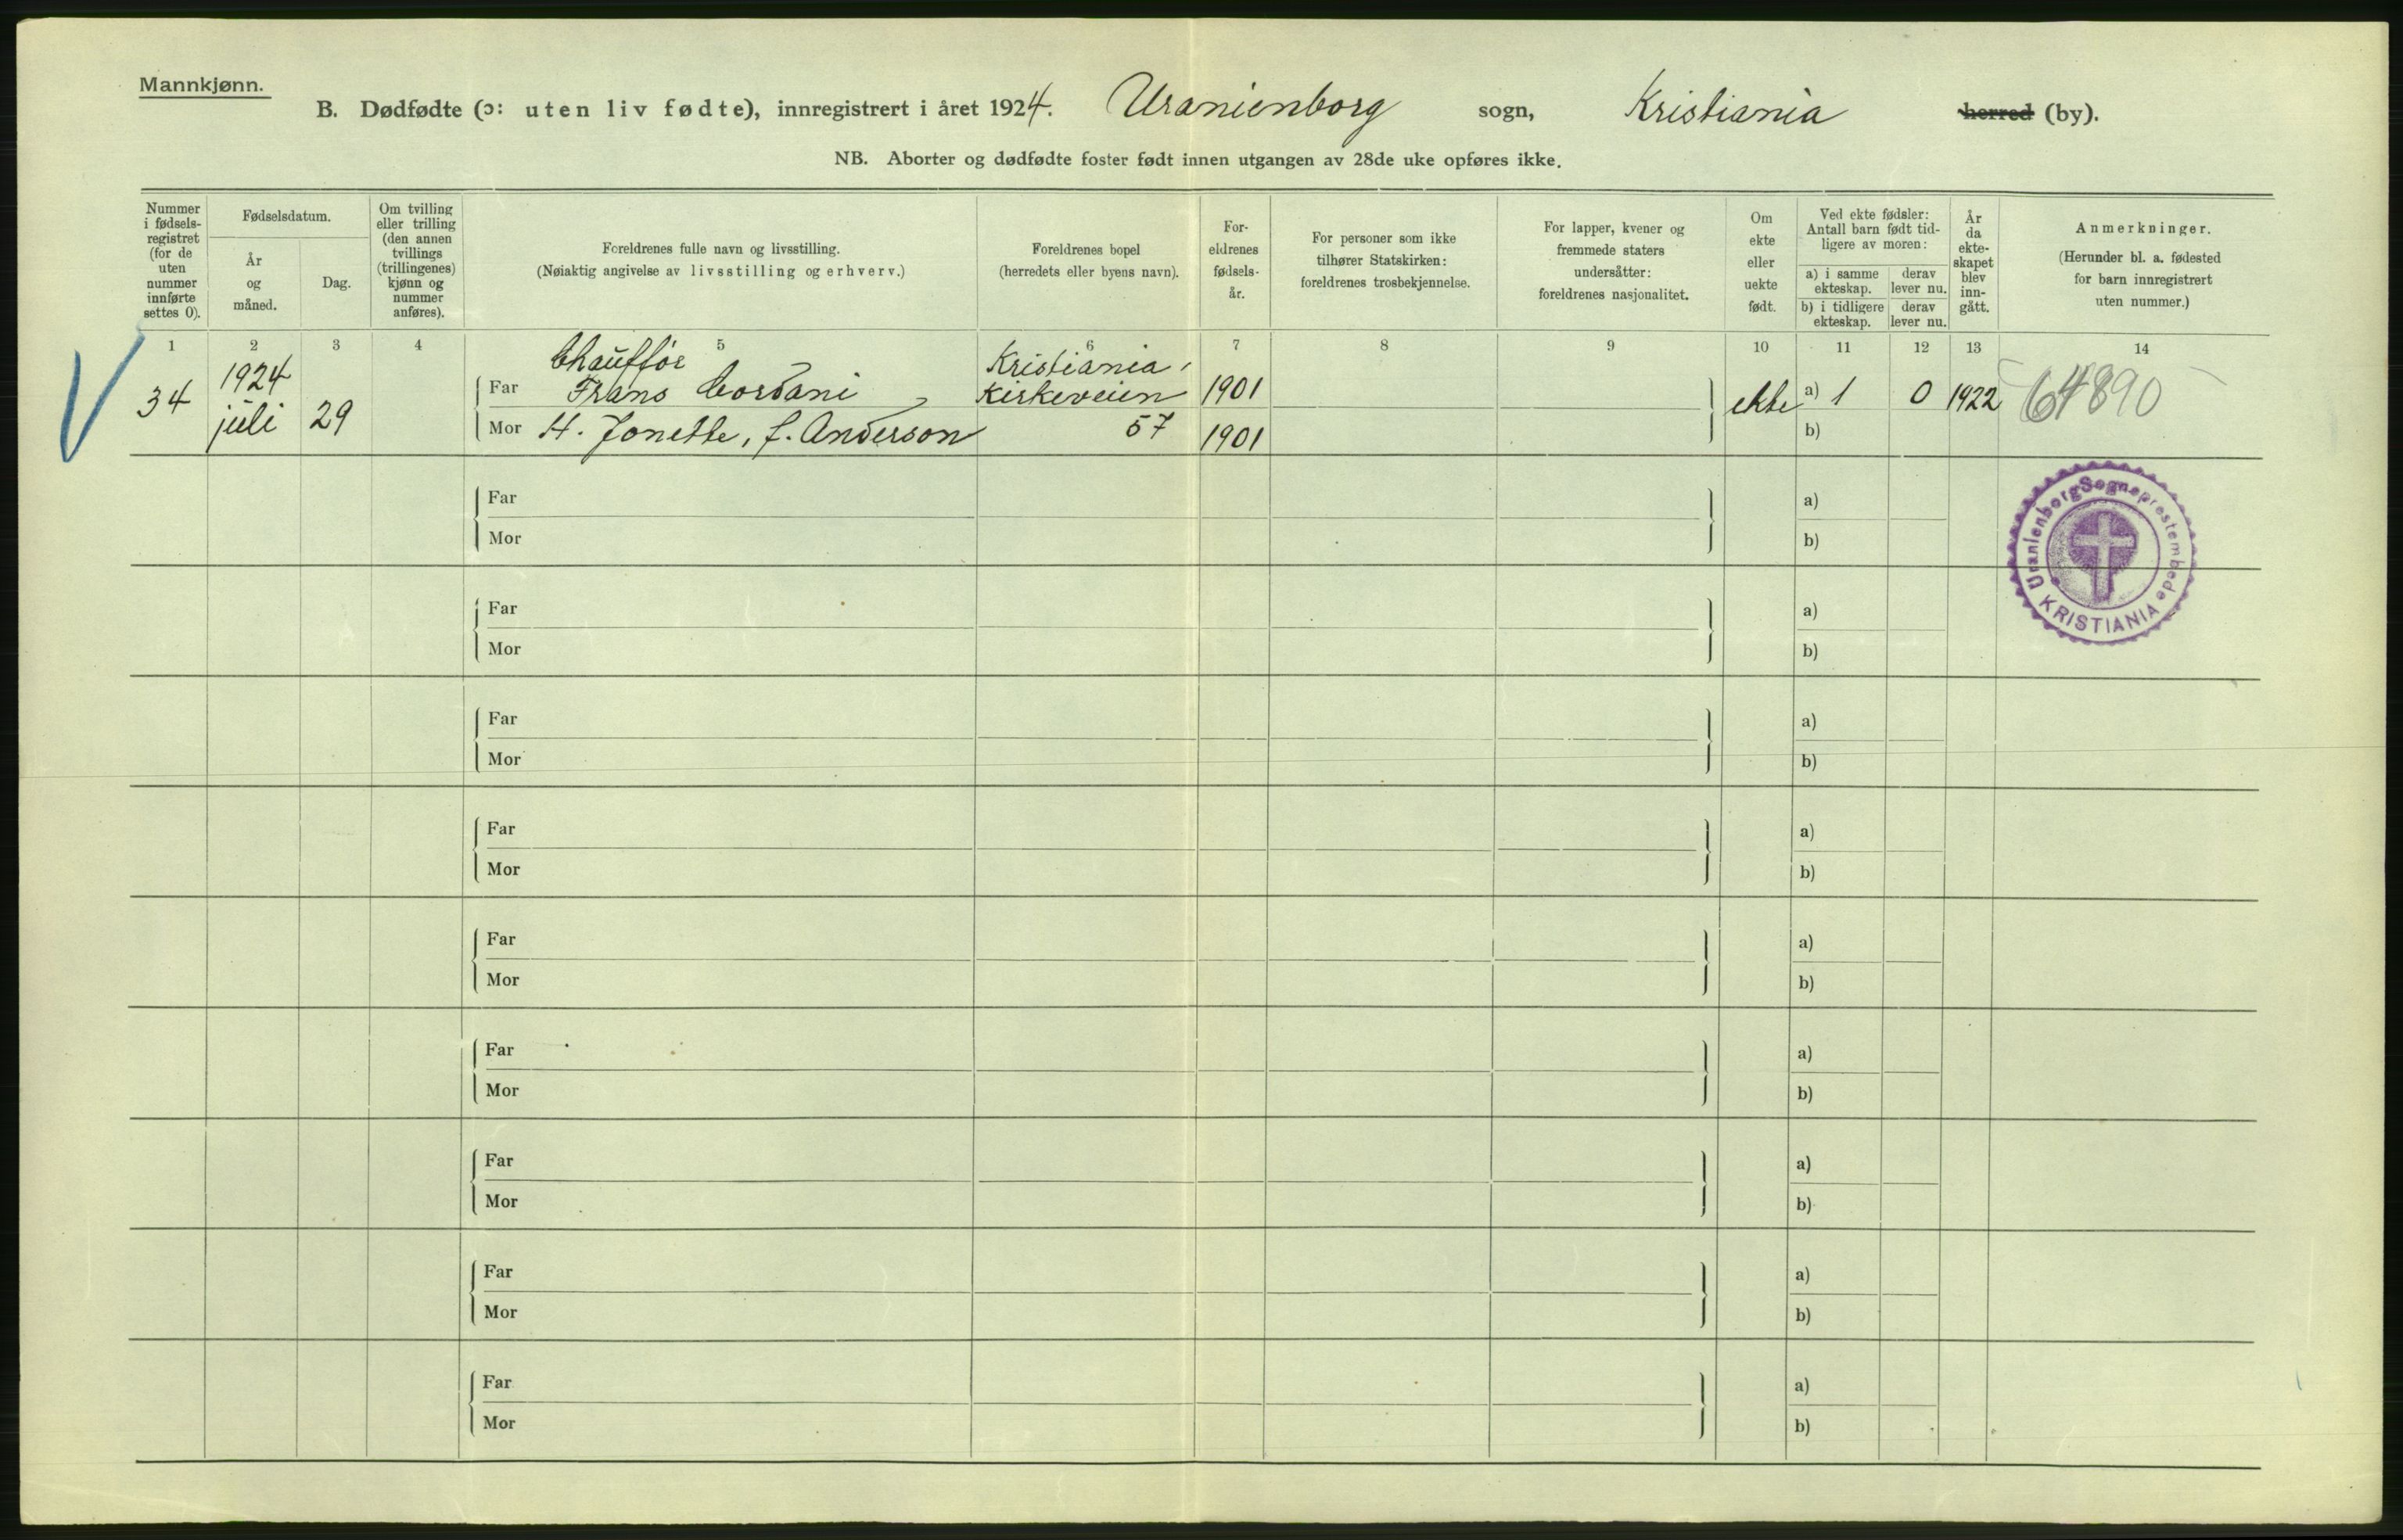 Mannkjønn.
B. Dødfødte (ɔ: uten liv fødte), innregistrert i året 1924. Uranienborg sogn, Kristiania herred (by).
NB. Aborter og dødfødte foster født innen utgangen av 28de uke opføres ikke.
Nummer
i fødsels-
registret
(for de
uten
nummer
innførte
settes 0).
Fødselsdatum.
År
og
måned.
Dag.
Om tvilling
eller trilling
(den annen
tvillings
(trillingenes)
kjønn og
nummer
anføres).
Foreldrenes fulle navn og livsstilling.
(Nøiaktig angivelse av livsstilling og erhverv.)
Foreldrenes bopel
(herredets eller byens navn).
For-
eldrenes
fødsels-
år.
For personer som ikke
tilhører Statskirken:
foreldrenes trosbekjennelse.
For lapper, kvener og
fremmede staters
undersåtter:
foreldrenes nasjonalitet.
Om
ekte
eller
uekte
født.
Ved ekte fødsler:
Antall barn født tid-
ligere av moren:
a) i samme
ekteskap.
derav
lever nu.
b) i tidligere
ekteskap.
derav
lever nu.
År
da
ekte-
skapet
blev
inn-
gått.
Anmerkninger.
(Herunder bl. a. fødested
for barn innregistrert
uten nummer.)
1 2 3 4 5 6 7 8 9 10 11 12 13 14
Chauffør Kristiania,
34 1924 Far Frans Cordani, Kirkeveien 1901 ekte a) 1 0 1922 64890
juli 29 Mor H. Jonette, f. Anderson 57 1901 b)
Far a)
Mor b)
Uranienborg Sogneprestembede
KRISTIANIA
Far a)
Mor b)
Far a)
Mor b)
Far a)
Mor b)
Far a)
Mor b)
Far a)
Mor b)
Far a)
Mor b)
Far a)
Mor b)
Far a)
Mor b)